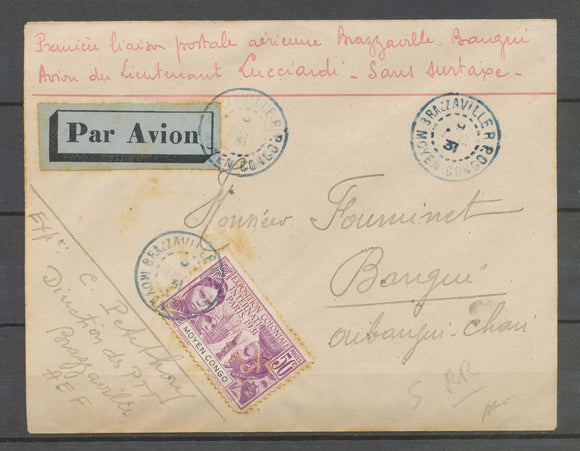 Première liaison postale aérienne Brazzaville - Bangui
Avion du Lieutenant Lucciardi - Sans surtaxe -
Par Avion
BRAZZAVILLE R.P.
31
MOYEN CONGO
BRAZZAVILLE R.P.
31
MOYEN CONGO
Monsieur Fouminet
Bangui
oubangui-chari
BRAZZAVILLE
31
MOYEN
EXPOSITION COLONIALE
INTERNATIONALE
PARIS 1931
MOYEN CONGO
50
Exp: C. Petithory
Direction des PTT
Brazzaville
AEF
5 RR